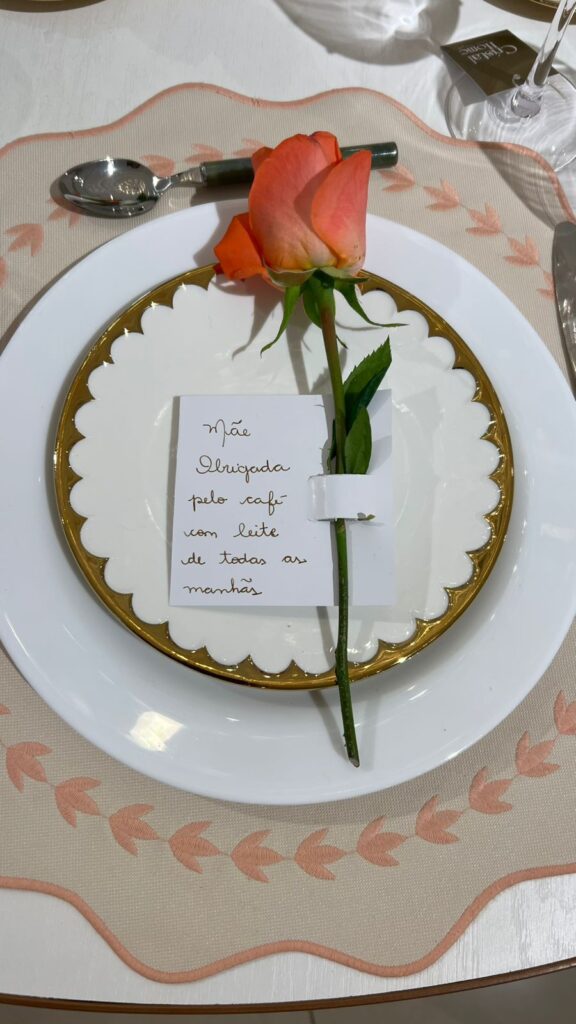 Cristal
HOME
Mãe
Obrigada
pelo café
com leite
de todas as
manhãs